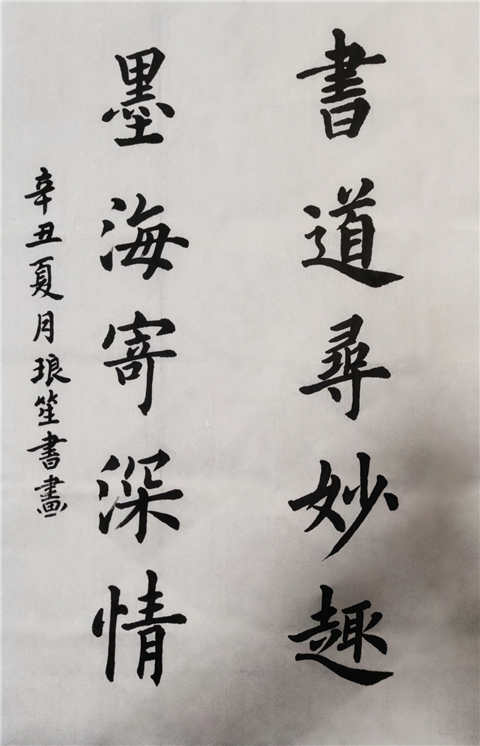 書道尋妙趣
墨海寄深情
辛丑夏月琅笙書畫